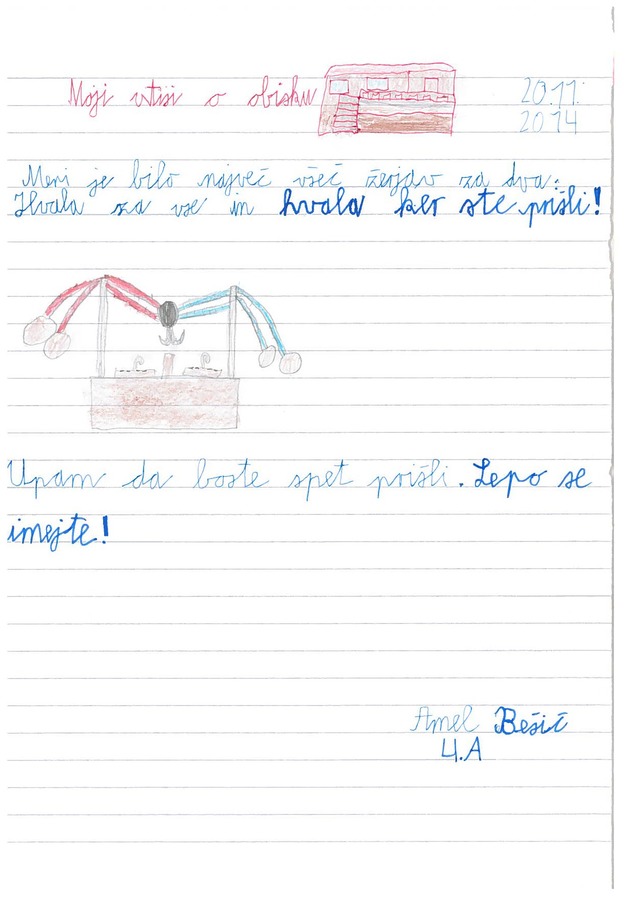 Moji vtisi o obisku
20.11.
2014
Meni je bilo največ všeč žerjav za dva.
Hvala za vse in hvala ker ste prišli!
Upam da boste spet prišli. Lepo se
imejte!
Amel Bešič
4.A